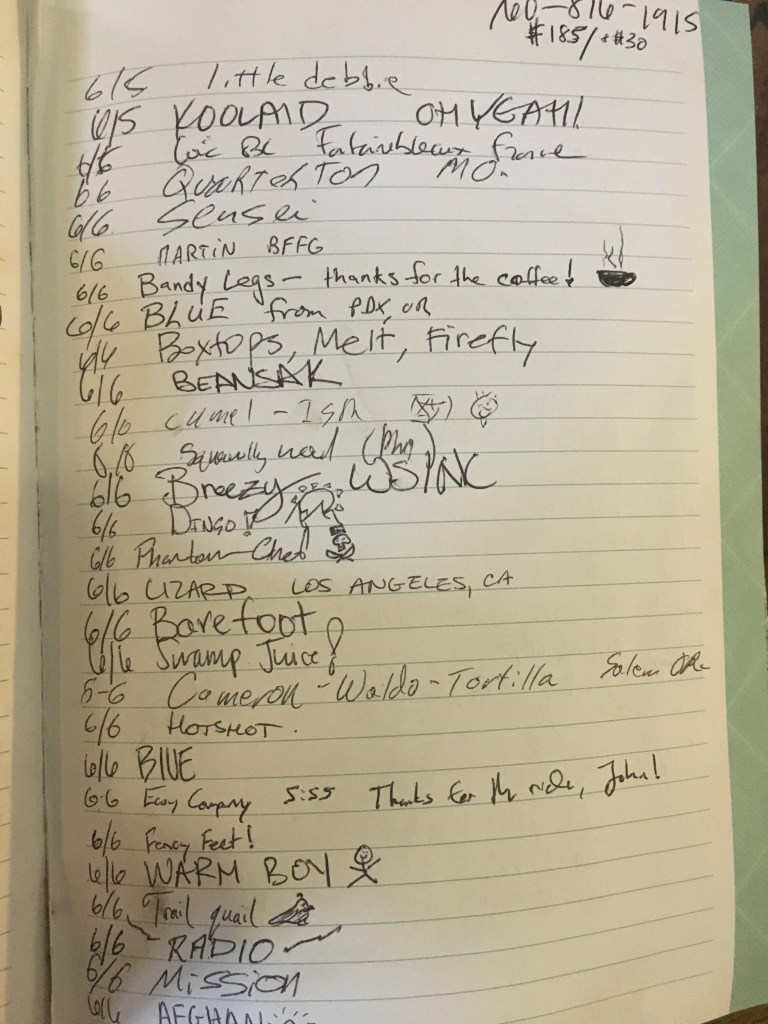 760-816-1915
$185/+$30
6/5 little debbie
6/5 KOOLAID OH YEAH!
6/5 Loic BL Fontainbleaux france
66 QUARTERTON MO.
6/6 Sensei
6/6 MARTIN BFFG
6/6 Bandy Legs - thanks for the coffee!
6/6 BLUE from PDX, OR
6/6 Boxtops, Melt, Firefly
6/6 BEANSAK
6/6 camel - ISR
6/6
6/6 Breezy WS/NC
6/6 DINGO!
6/6 Phantom Chef
6/6 LIZARD LOS ANGELES, CA
6/6 Barefoot
6/6 Swamp Juice!
5-6 Cameron-Waldo-Tortilla Salem ORe
6/6 HOTSHOT.
6/6 BLUE
6-6 Easy Company 5:55 Thanks for the ride, John!
6/6 Fancy Feet!
6/6 WARM BOY
6/6 Trail quail
6/6 RADIO
6/6 Mission
6/6 AFGHAN